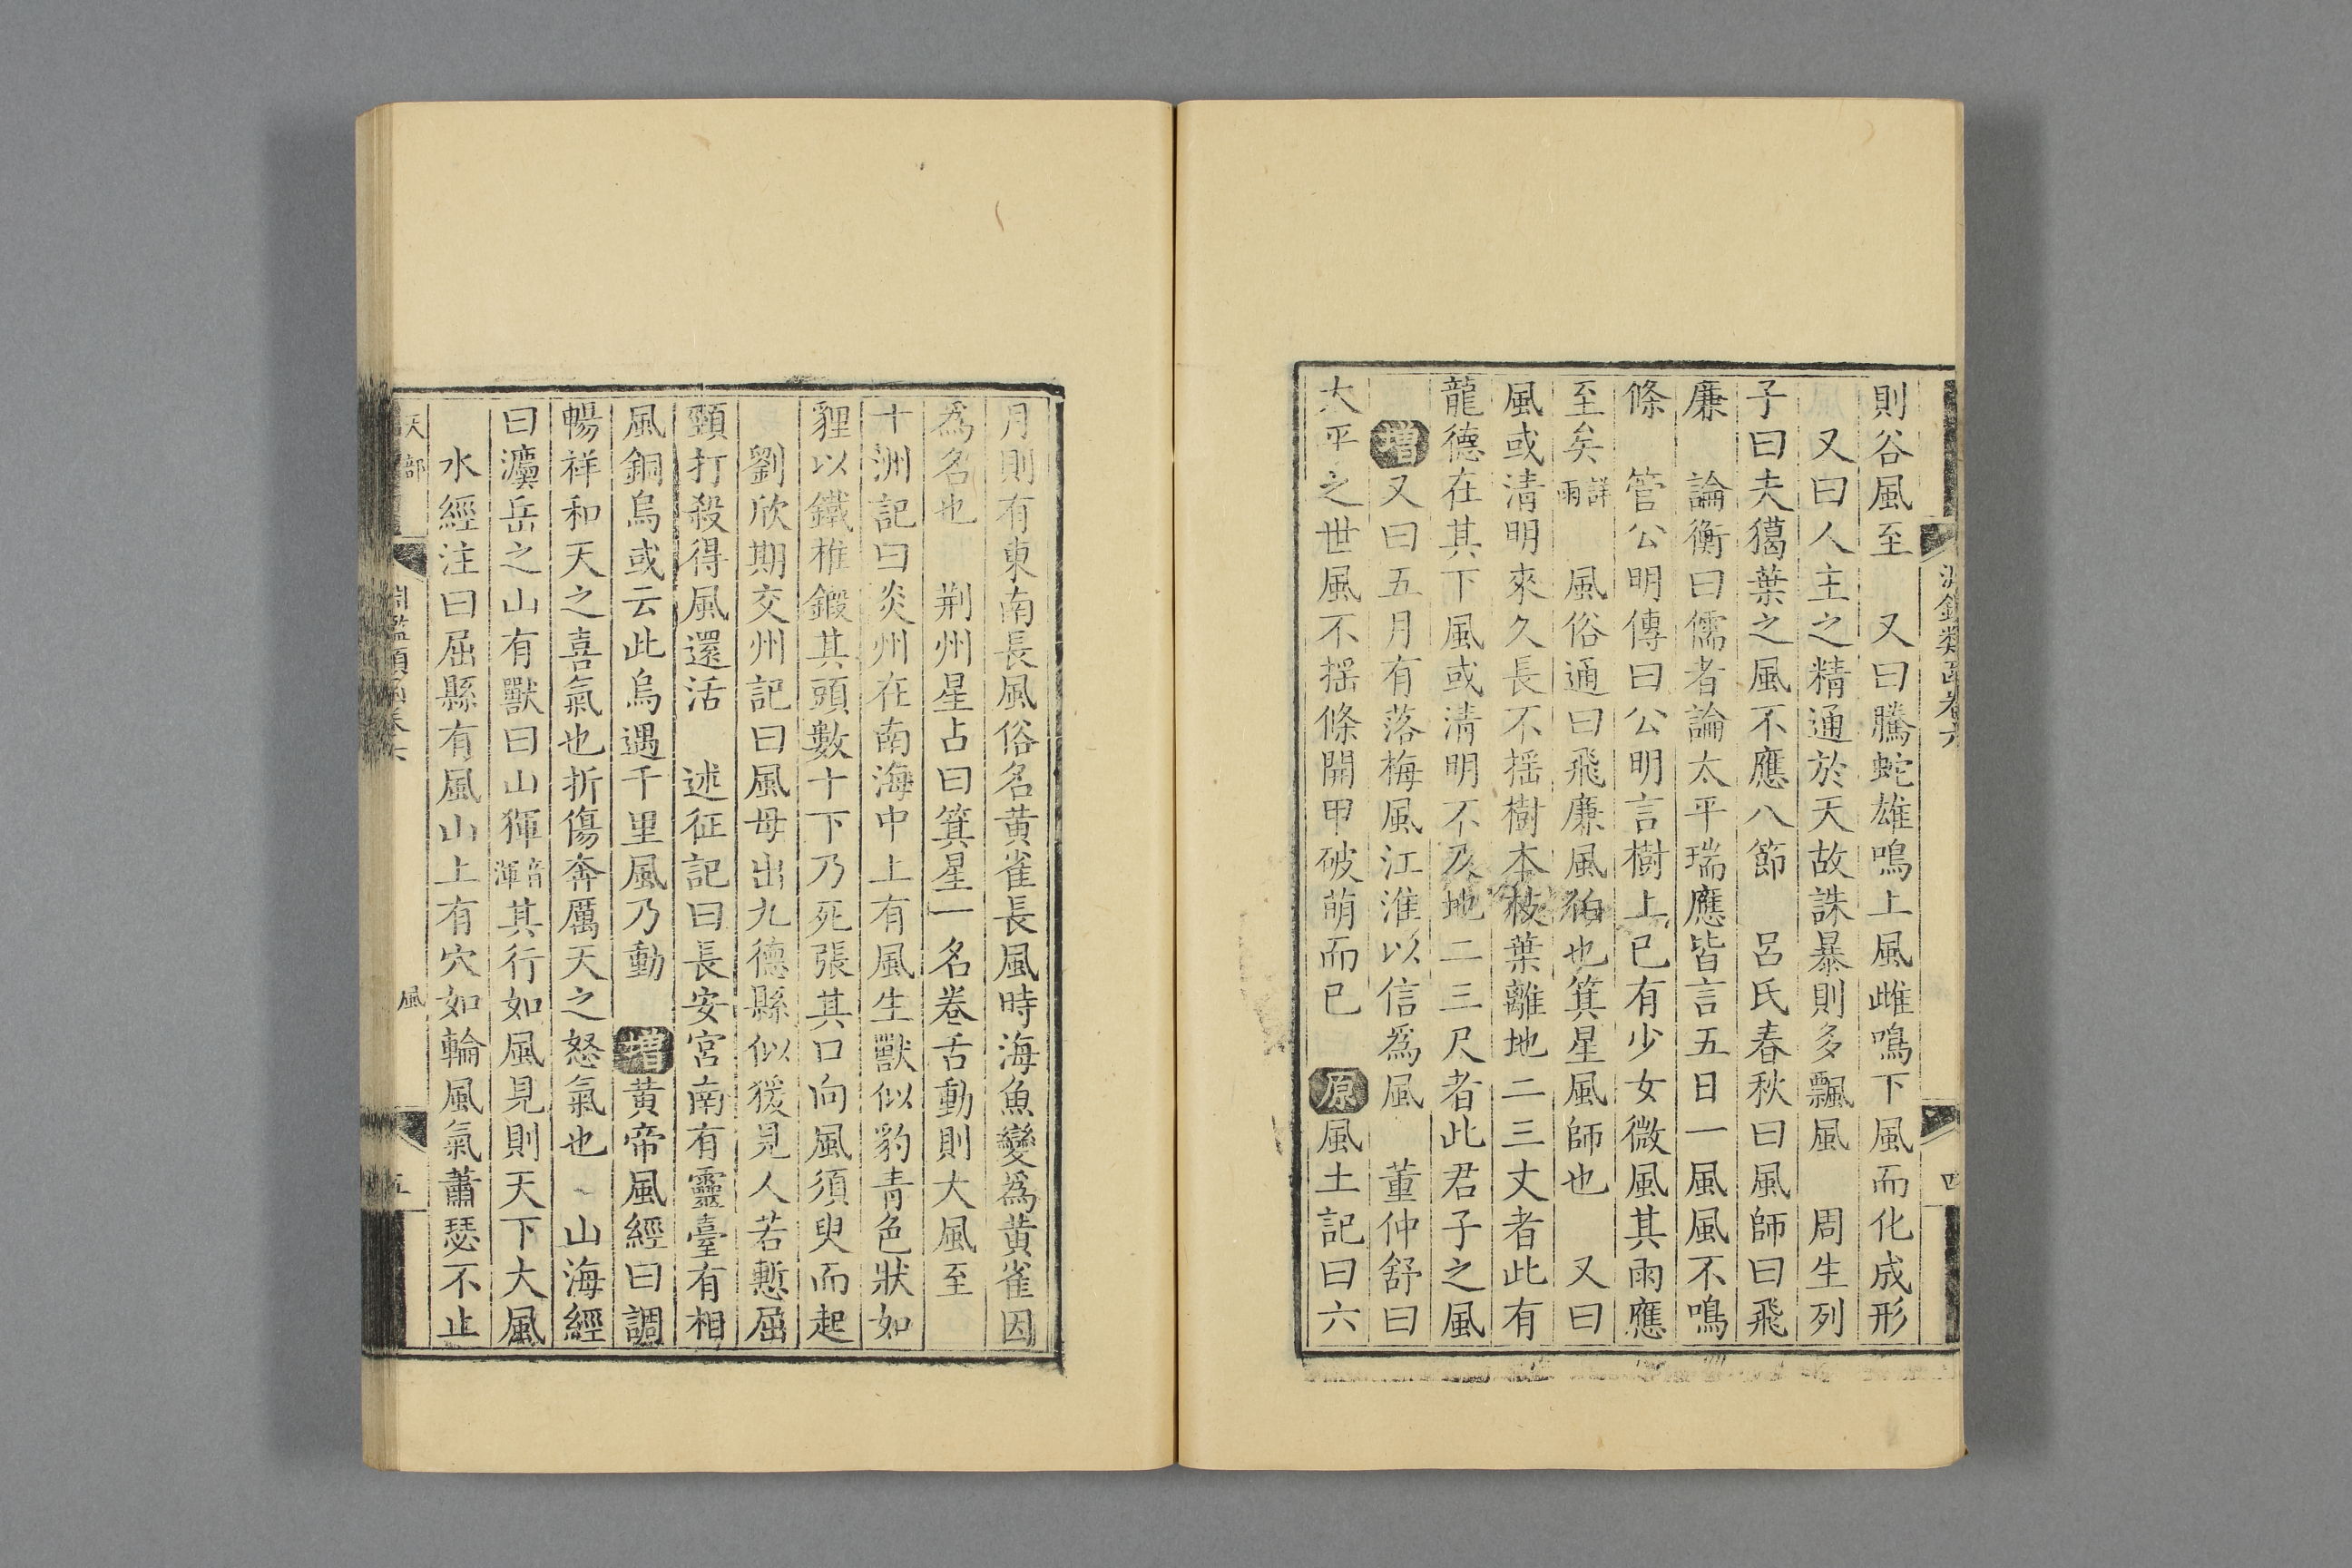 淵鑑類函卷六
四
則谷風至　又曰騰蛇雄鳴上風雌鳴下風而化成形
又曰人主之精通於天故誅暴則多飄風　周生列
子曰夫獦葉之風不應八節　呂氏春秋曰風師曰飛
廉　論衡曰儒者論太平瑞應皆言五日一風風不鳴
條　管公明傳曰公明言樹上已有少女微風其雨應
至矣詳雨　風俗通曰飛廉風伯也箕星風師也　又曰
風或清明來久長不揺樹本枝葉離地二三丈者此有
龍德在其下風或清明不及地二三尺者此君子之風
增又曰五月有落梅風江淮以信爲風　董仲舒曰
太平之世風不揺條開甲破萌而已　原風土記曰六
月則有東南長風俗名黃雀長風時海魚變爲黃雀因
爲名也　荆州星占曰箕星一名卷舌動則大風至
十洲記曰炎州在南海中上有風生獸似豹青色狀如
貍以鐵椎鍛其頭數十下乃死張其口向風須臾而起
劉欣期交州記曰風母出九德縣似猨見人若慙屈
頸打殺得風還活　述征記曰長安宮南有靈臺有相
風銅烏或云此烏遇千里風乃動　增黃帝風經曰調
暢祥和天之喜氣也折傷奔厲天之怒氣也　山海經
曰灢岳之山有獸曰山𤟤音渾其行如風見則天下大風
水經注曰屈縣有風山上有穴如輪風氣蕭瑟不止
天部
淵鑑類函卷六
風
五